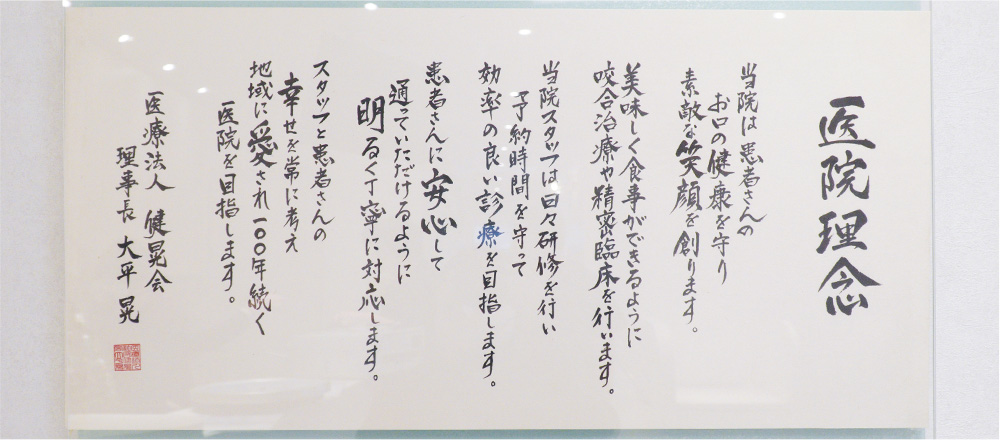 医院理念
当院は患者さんの
お口の健康を守り
素敵な笑顔を創ります。
美味しく食事ができるように
咬合治療や精密臨床を行います。
当院スタッフは日々研修を行い
予約時間を守って
効率の良い診療を目指します。
患者さんに安心して
通っていただけるように
明るく丁寧に対応します。
スタッフと患者さんの
幸せを常に考え
地域に愛され一〇〇年続く
医院を目指します。
医療法人 健晃会
理事長 大平 晃